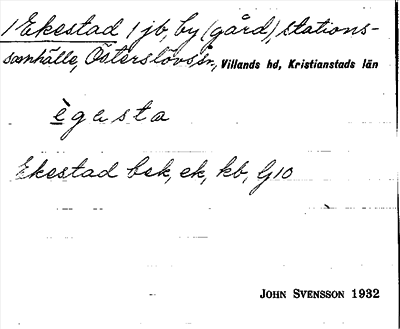 1 Ekestad 1 jb, by (gård), stations-
samhälle, Österslövs sn, Villands hd, Kristianstads län
ègasta
Ekestad bsk, ek, kb, G10
JOHN SVENSSON 1932